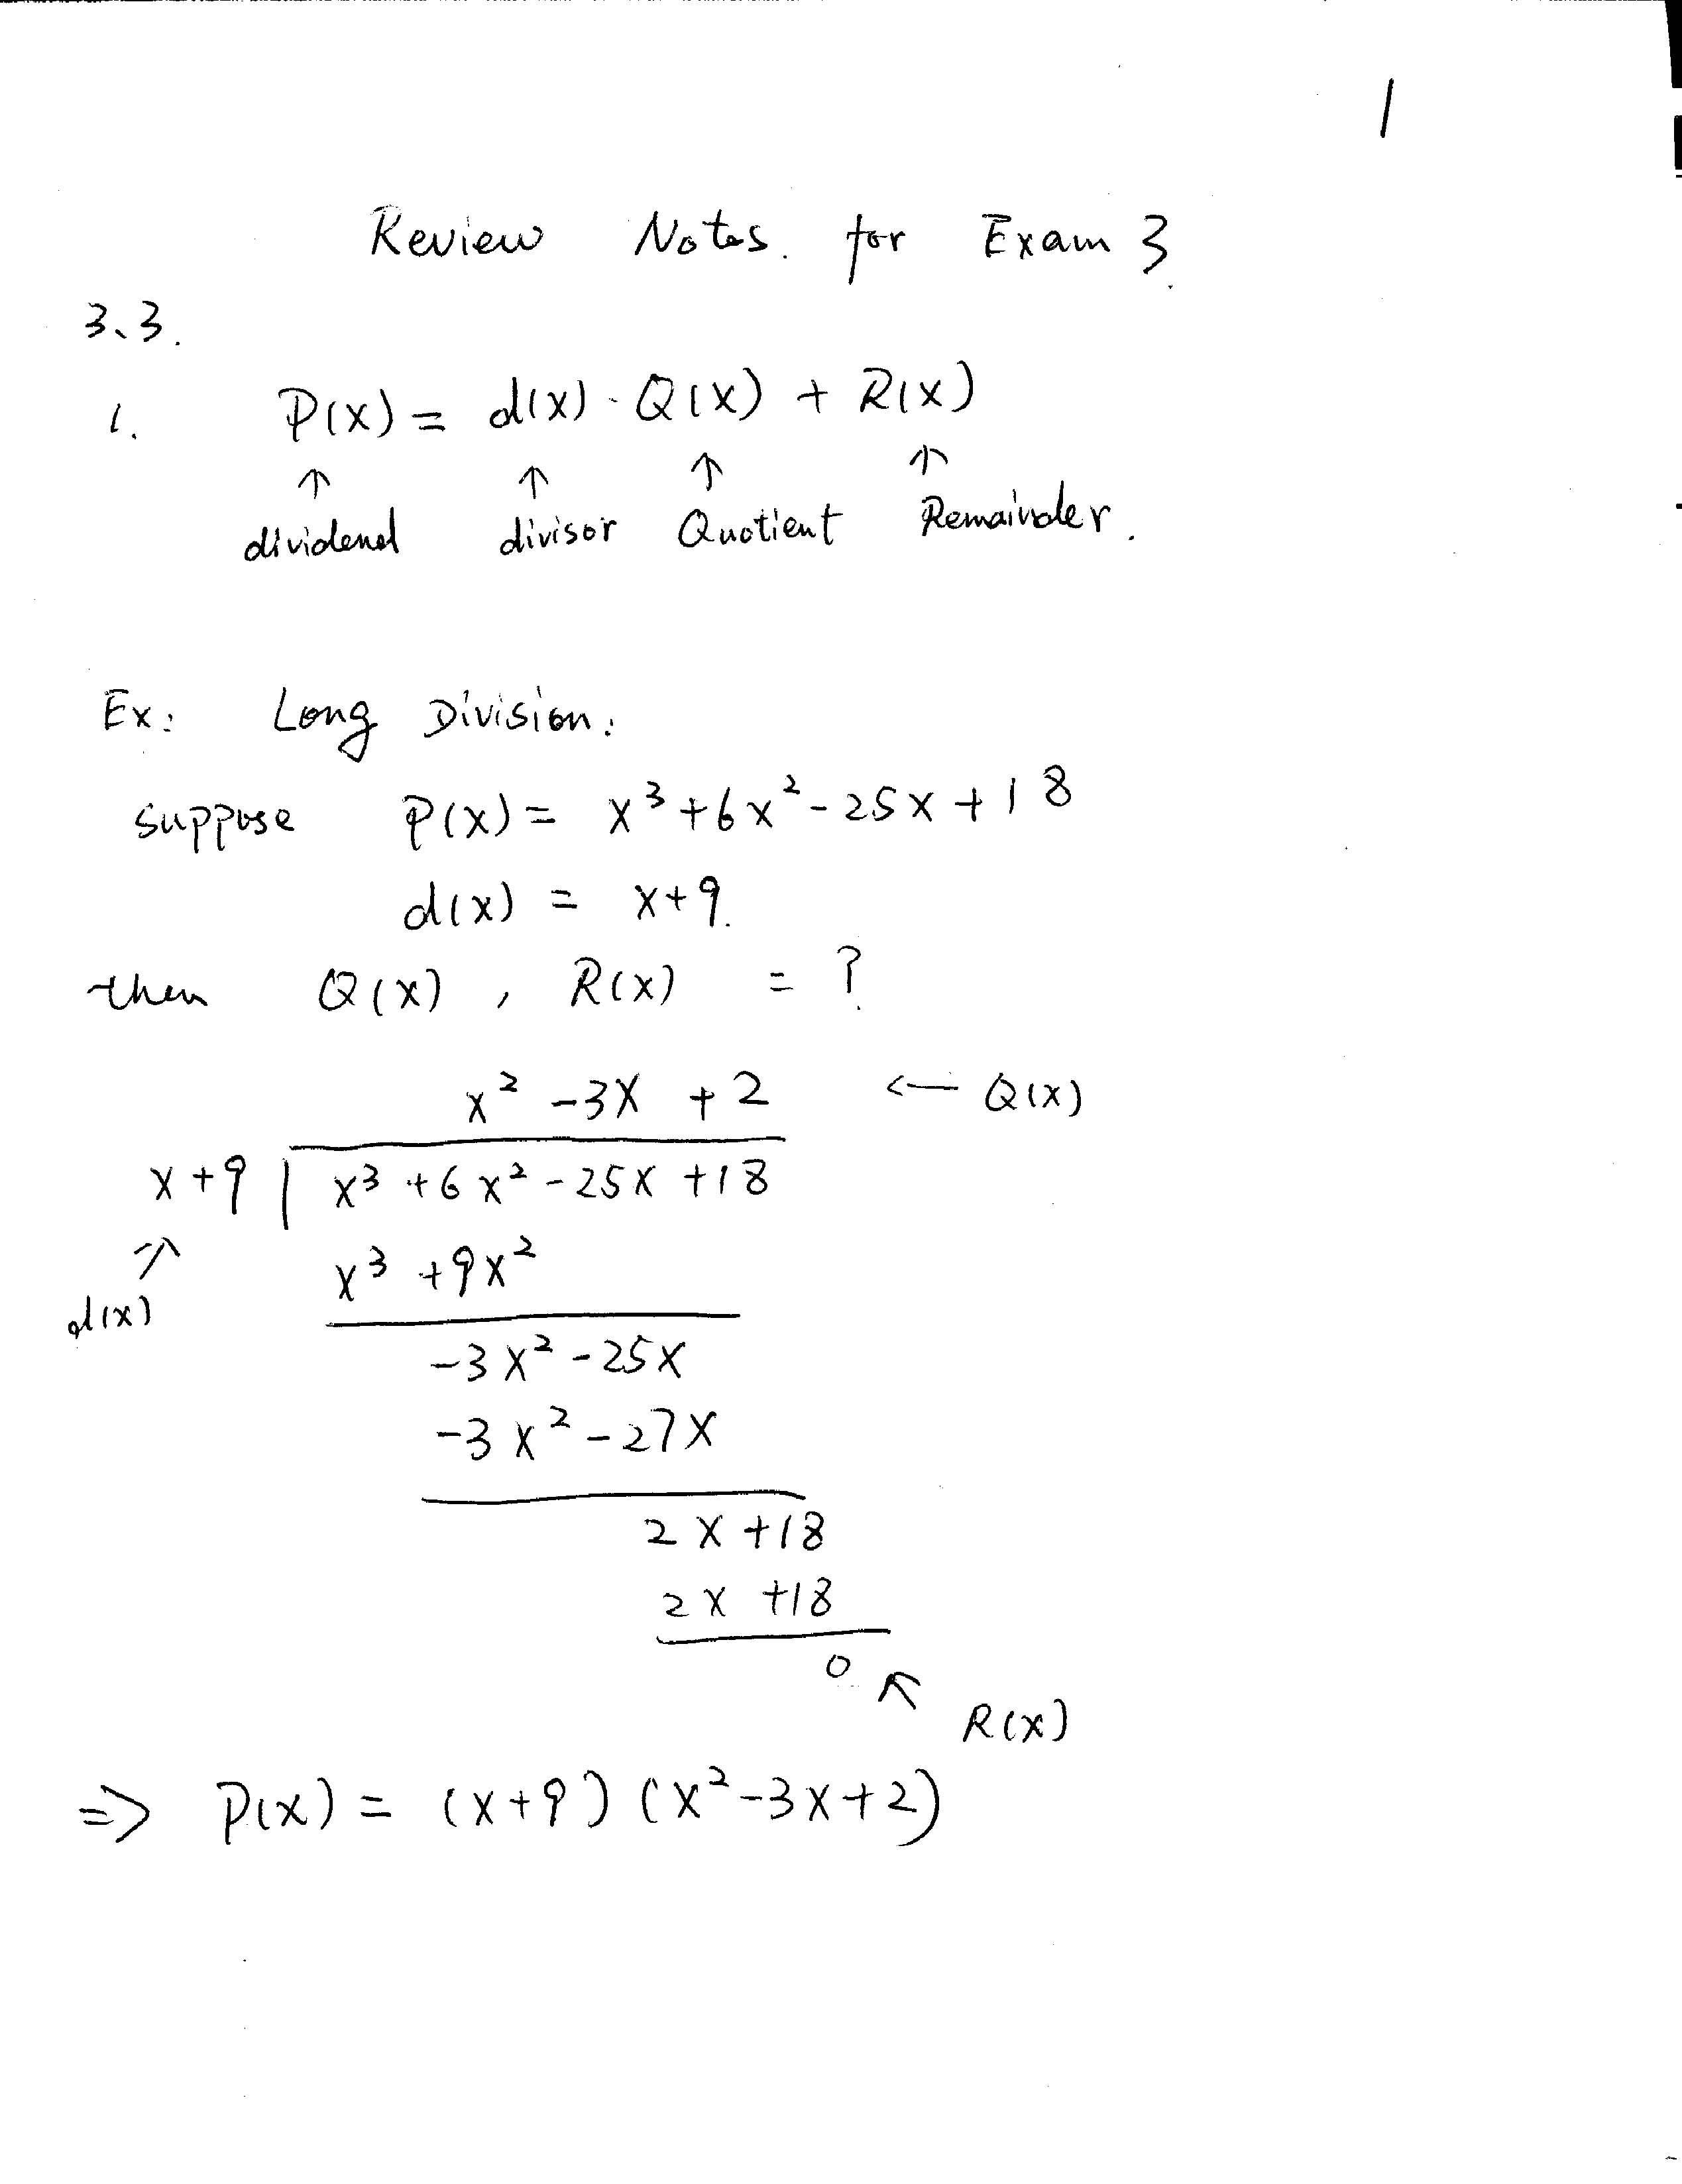 1
Review Notes. for Exam 3
3.3.
1. P(x) = d(x) · Q(x) + R(x)
↑ ↑ ↑ ↑
dividend divisor Quotient Remainder.
Ex: Long Division:
suppose P(x) = x³ + 6x² - 25x + 18
d(x) = x+9.
then Q(x) , R(x) = ?
x² - 3x + 2 ← Q(x)
x+9 | x³ + 6x² - 25x + 18
↗
x³ + 9x²
d(x)
-3x² - 25x
-3x² - 27x
2x + 18
2x + 18
0 ↖
R(x)
=> P(x) = (x+9) (x² - 3x + 2)